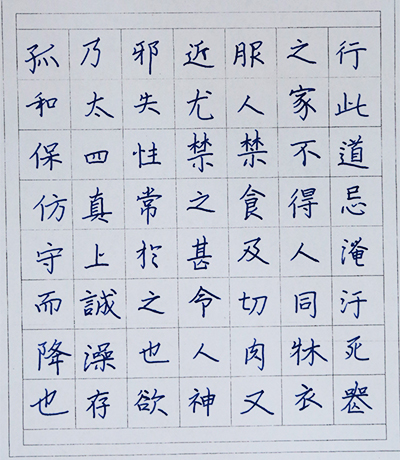 行此道忌淹汙死喪
之家不得人同牀衣
服人禁食及切肉又
近尤禁之甚令人神
邪失性常於之也欲
乃太四真上誠澡存
孤和保仿守而降也